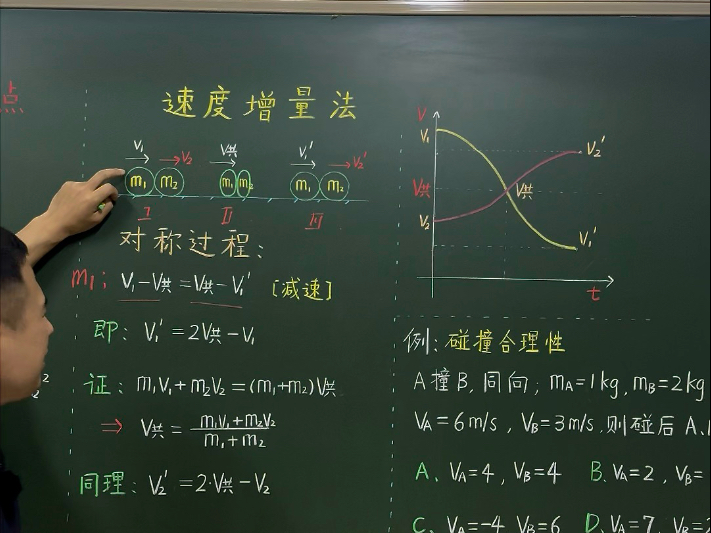 点
速度增量法
V₁ V₂ V共 V₁′ V₂′
m₁ m₂ m₁ m₂ m₁ m₂
Ⅰ Ⅱ Ⅲ
对称过程:
m₁: V₁-V共=V共-V₁′ [减速]
即: V₁′=2V共-V₁
证: m₁V₁+m₂V₂=(m₁+m₂)V共
⇒ V共=(m₁V₁+m₂V₂)/(m₁+m₂)
同理: V₂′=2·V共-V₂
V
V₁
V₂′
V共 V共
V₂
V₁′
t
例: 碰撞合理性
A撞B,同向; mA=1kg, mB=2kg
VA=6m/s, VB=3m/s,则碰后A、
A、VA=4, VB=4 B、VA=2, VB=
C、VA=-4 VB=6 D、VA=7, VB=